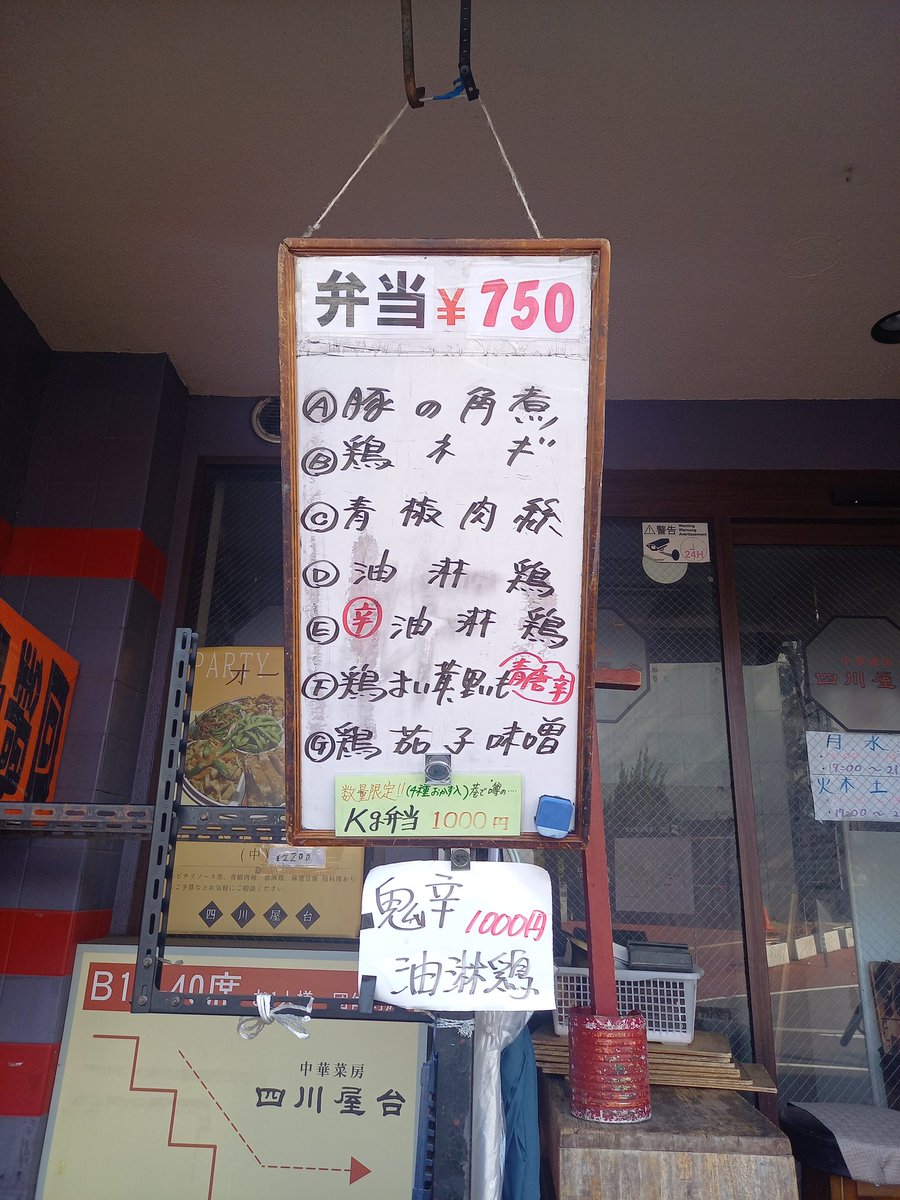 弁当¥750
Ⓐ豚の角煮
Ⓑ鶏ネギ
Ⓒ青椒肉絲
Ⓓ油淋鶏
Ⓔ辛油淋鶏
Ⓕ鶏まい茸黒いも青唐辛
Ⓖ鶏茄子味噌
数量限定!!(4種おかず入)巷で噂の…
Kg弁当 1000円
鬼辛 1000円
油淋鶏
PARTY
オー
(中)
¥2200
四川屋台
B1 40席
中華菜房
四川屋台
警告
Warning
24H
中華菜房
四川屋
月 水
17:00～21
火 木 土
17:00～2